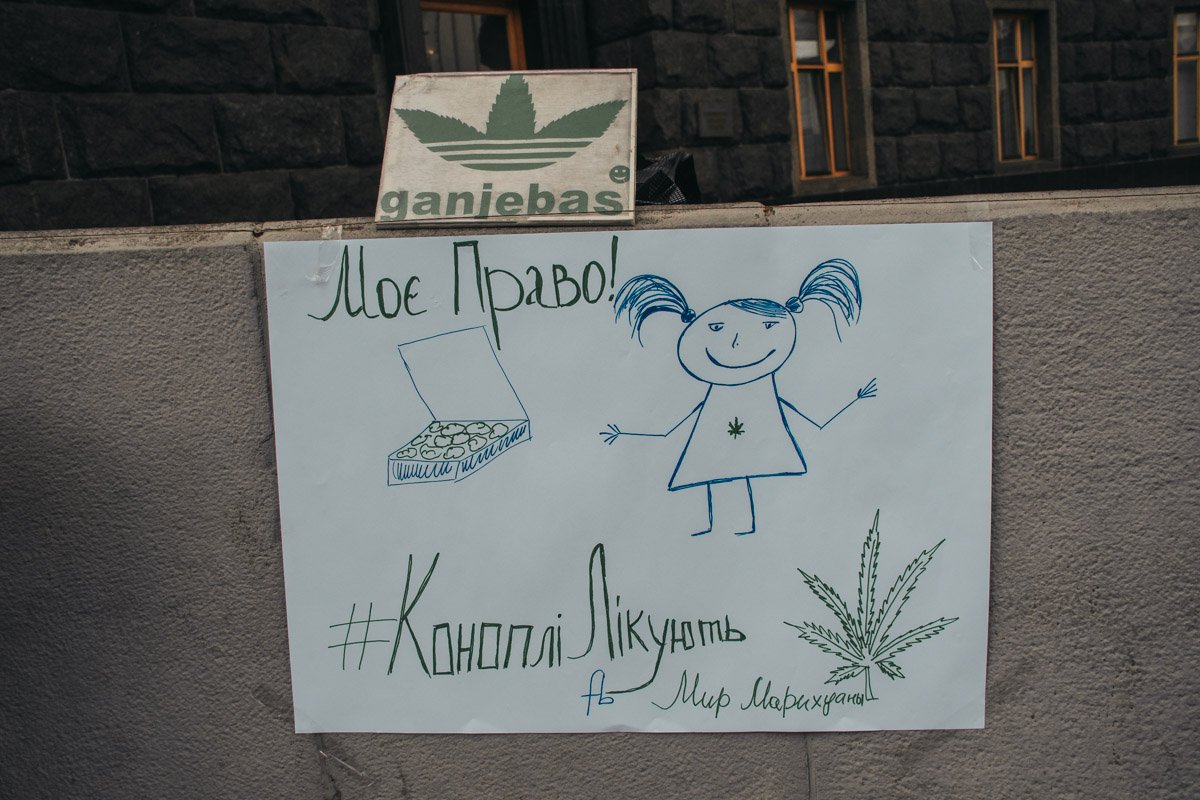 ganjebas
Моє Право!
#Коноплі Лікують
fb Мир Марихуаны